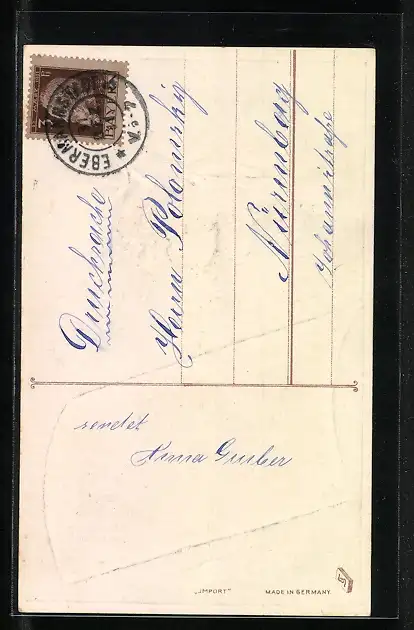 Drucksache
Herrn Polomsky
Nürnberg
Johannisstraße
sendet
Anna Gruber
BAYERN
EBERM
„IMPORT"
MADE IN GERMANY